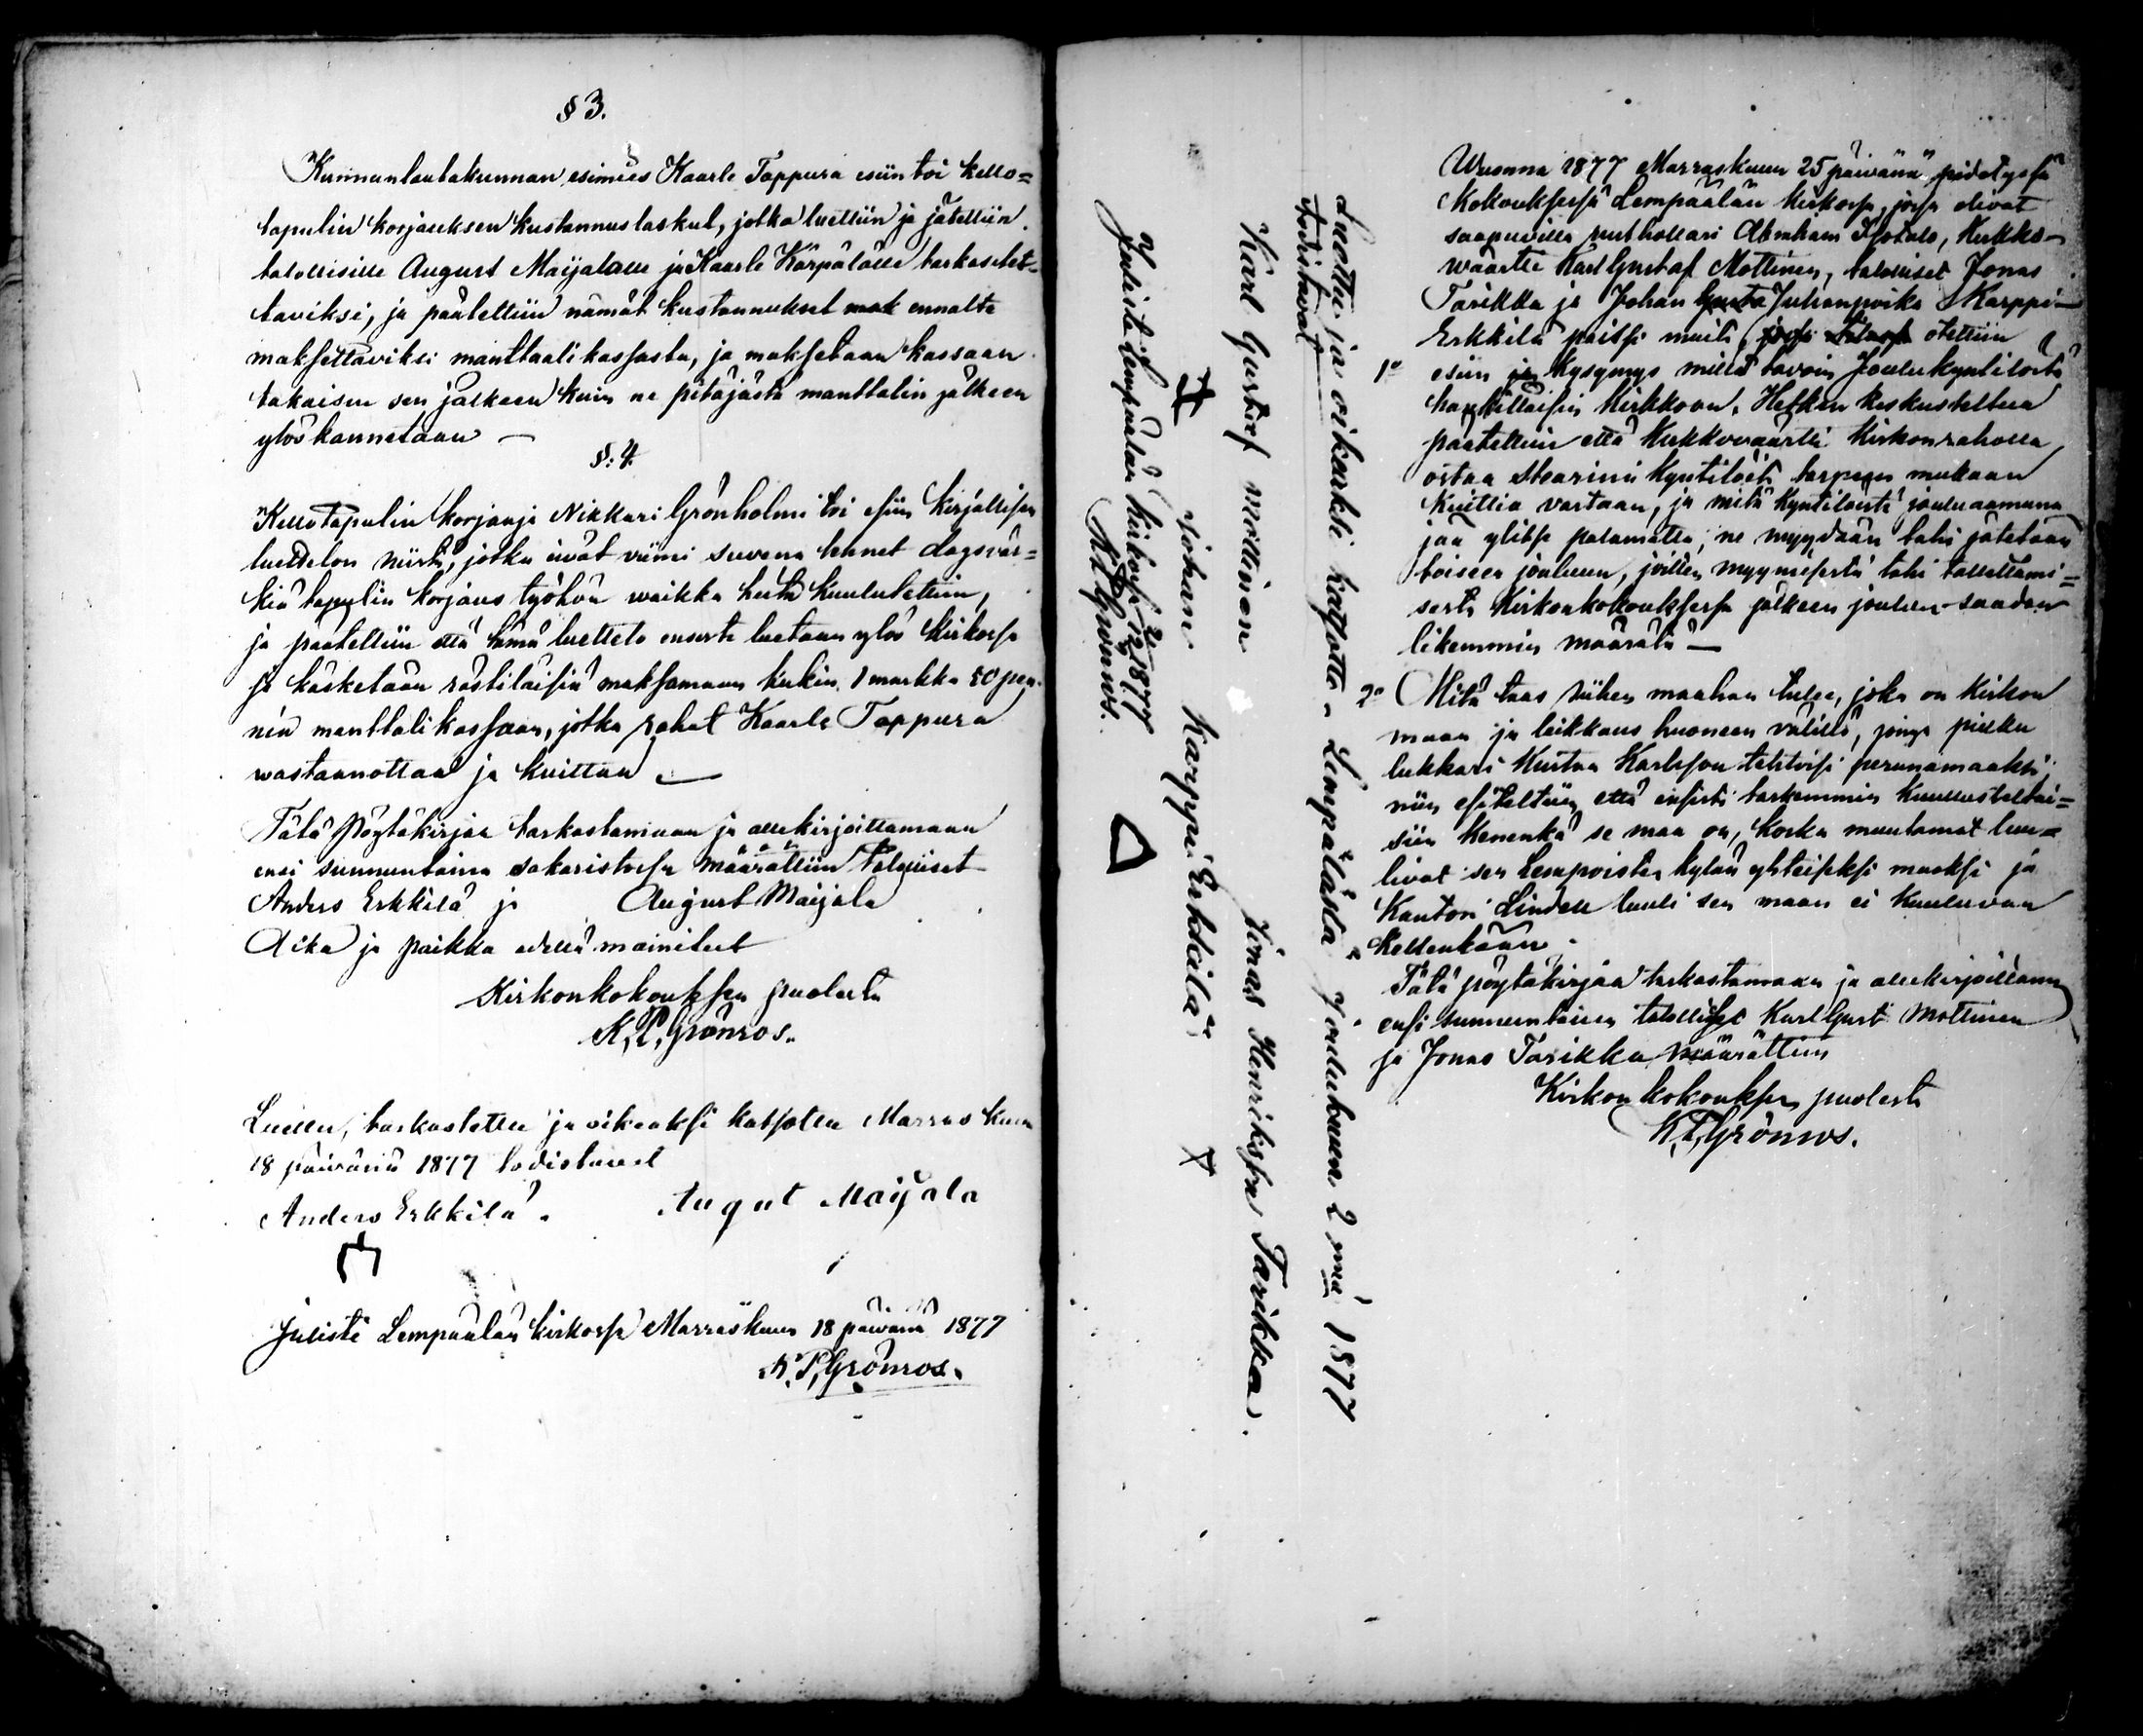 § 3.
Kunnanlautakunnan esimies Kaarle Tappura esiin toi kello=
tapulin korjauksen kustannus laskut, jotka luettiin ja jätettiin
talollisille August Maijalalle ja Kaarle Kärpälälle tarkastet=
taviksi, ja päätettiin nämät kustannukset mak ennalta
maksettaviksi manttaali kassasta, ja maksetaan kassaan
takaisin sen jälkeen kuin ne pitäjästä manttalin jälkeen
ylöskannetaan —
§: 4.
Kellotapulin korjaaja Nikkari Grönholmi toi esiin kirjallisen
luettelon niistä, jotka eivät viimi suvena tehnet dagsvär=
kiä tapulin korjaus työhön waikka heitä kuulutettiin,
ja päätettiin että tämä luettelo ensistä luetaan ylös kirkossa
ja käsketään rästiläisiä maksamaan kukin 1 markka 50 pen=
niä manttali kassaan, jotka rahat Kaarle Tappura
wastaanottaa ja kuittaa —
Tätä Pöytäkirjaa tarkastamaan ja allekirjoittamaan
ensi sunnuntaina sakaristossa määrättiin talolliset
Anders Erkkilä ja August Maijala
Aika ja paikka edellä mainitut
Kirkonkokouksen puolesta
K. P. Grönros.
Luettu, tarkastettu ja oikeaksi katsottu Marras kuun
18 päivänä 1877 todistavat
Anders Erkkilä. Augut Maijala
Julisti Lempäälän kirkossa Marraskuun 18 päivänä 1877
K. P. Grönros.
Wuonna 1877 Marraskuun 25 päivänä pidetyssä
Kokouksessa Lempäälän kirkossa, jossa olivat
saapuvilla rusthollari Abraham Isotalo, Kirkko-
wäärtti Karl Gustaf Mottinen, talolliset Jonas
Tarikka ja Johan Gusta Juhanpoika Karppi-
Erkkilä paitsi muita, jossa otettiin
1o esiin ja kysymys millä tavoin Joulu kyntilöitä
hankittaisiin kirkkoon. Hetken keskusteltua
päätettiin että Kirkkowäärtti Kirkon raholla
ostaa Stearini kyntilöitä tarpeen mukaan
kuittia vastaan, ja mitä kyntilöistä jouluaamuna
jää ylitse palamatta, ne myydään tahi jätetään
toiseen jouluun, joitten myymisestä tahi tallettami=
sesta Kirkonkokouksessa jälkeen joulun saadan
likemmin määrätä —
2o Mitä taas siihen maahan tulee, joka on kirkon
maan ja leikkaus huoneen välillä, jonga
lukkari Kustaa Karlsson perunamaaksi,
niin esiteltiin että ensisti tarkemmin kuullusteltai=
siin kenenkä se maa on, koska muutamat luu=
livat sen Lempoisten kylän yhteiseksi maaksi ja
Kantori Lindell luuli sen maan ei kuuluvan
kellenkään.
Tätä pöytäkirjaa tarkastamaan ja allekirjoittamaan
ensi sunnuntaina talolliset Karl Gust Mottinen
ja Jonas Tarikka määrättiin
Kirkon kokouksen puolesta
K. P. Grönros.
Luettu ja oikeaksi katsottu Lempälästä Joulukuun 2 nna 1877
todistavat
Karl Gustaf Mottinen Jonas Henriksson Tarikka.
Johan Karppi Erkkilä
Julisti Lempäälän kirkossa 2/12 1877
K. P. Grönros.